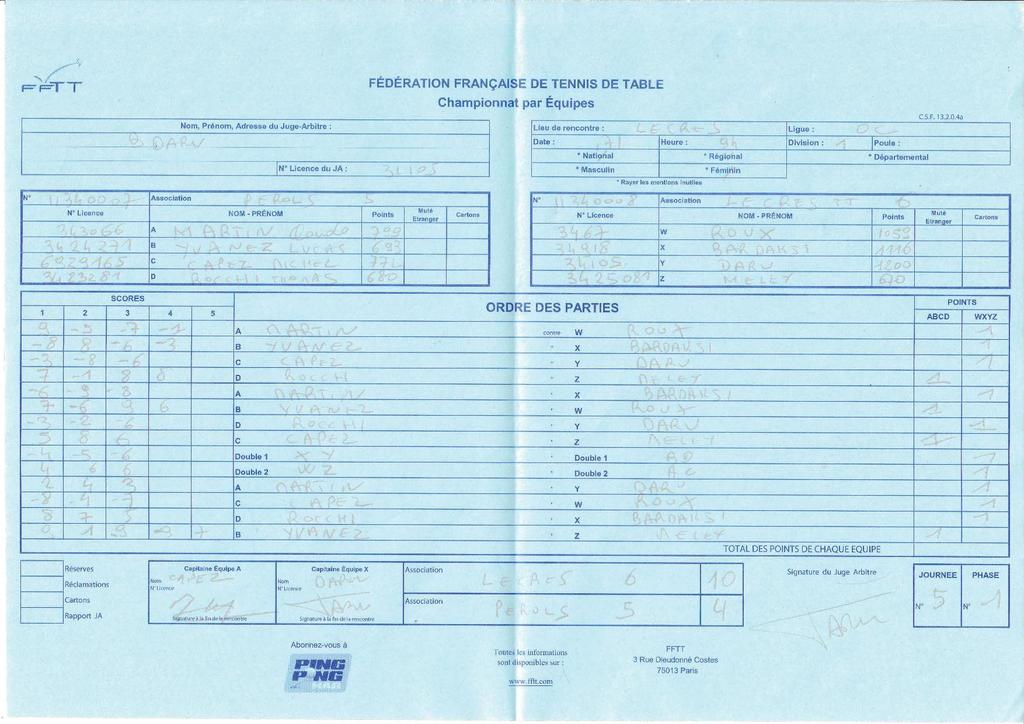 FFTT
FÉDÉRATION FRANÇAISE DE TENNIS DE TABLE
Championnat par Équipes
C.S.F. 13.2.0.4a
Nom, Prénom, Adresse du Juge-Arbitre :
DARU
N° Licence du JA : 34105
Lieu de rencontre : LE CRES Ligue : OC
Date : Heure : 9h Division : 1 Poule :
* National * Régional * Départemental
* Masculin * Féminin
* Rayer les mentions inutiles
N° 11340007 Association PEROLS 5
N° Licence NOM - PRÉNOM Points Muté Etranger Cartons
343066 A MARTIN 799
3424271 B YVANEZ LUCAS 693
6929165 C CAPEZ MICHEL 772
3423281 D ROCCHI THOMAS 680
N° 11340008 Association LE CRES TT 6
N° Licence NOM - PRÉNOM Points Muté Etranger Cartons
3467 W ROUX 1059
34918 X BARDAKSI 1116
34105 Y DARU 1200
3425081 Z MELEY 670
SCORES ORDRE DES PARTIES POINTS
1 2 3 4 5 ABCD WXYZ
9 -9 -7 -1 A MARTIN contre W ROUX 1
-8 8 -6 -3 B YVANEZ " X BARDAKSI 1
-3 -8 -6 C CAPEZ " Y DARU 1
7 -1 8 8 D ROCCHI " Z MELEY 1
-6 -9 -8 A MARTIN " X BARDAKSI 1
7 -6 9 6 B YVANEZ " W ROUX 1
-3 -2 -6 D ROCCHI " Y DARU 1
5 8 6 C CAPEZ " Z MELEY 1
-4 -5 -6 Double 1 XY " Double 1 AD 1
4 6 6 Double 2 WZ " Double 2 AC 1
2 4 3 A MARTIN " Y DARU 1
-8 -4 -7 C CAPEZ " W ROUX 1
8 7 5 D ROCCHI " X BARDAKSI 1
9 1 -9 -9 7 B YVANEZ " Z MELEY 1
TOTAL DES POINTS DE CHAQUE EQUIPE
Réserves
Réclamations
Cartons
Rapport JA
Capitaine Équipe A
Nom CAPEZ
N° Licence
Signature à la fin de la rencontre
Capitaine Équipe X
Nom DARU
N° Licence
DARU
Signature à la fin de la rencontre
Association LE CRES 6 10
Association PEROLS 5 4
Signature du Juge Arbitre
DARU
JOURNEE PHASE
N° 5 N° 1
Abonnez-vous à
PING PONG MAG
Toutes les informations
sont disponibles sur :
www.fftt.com
FFTT
3 Rue Dieudonné Costes
75013 Paris